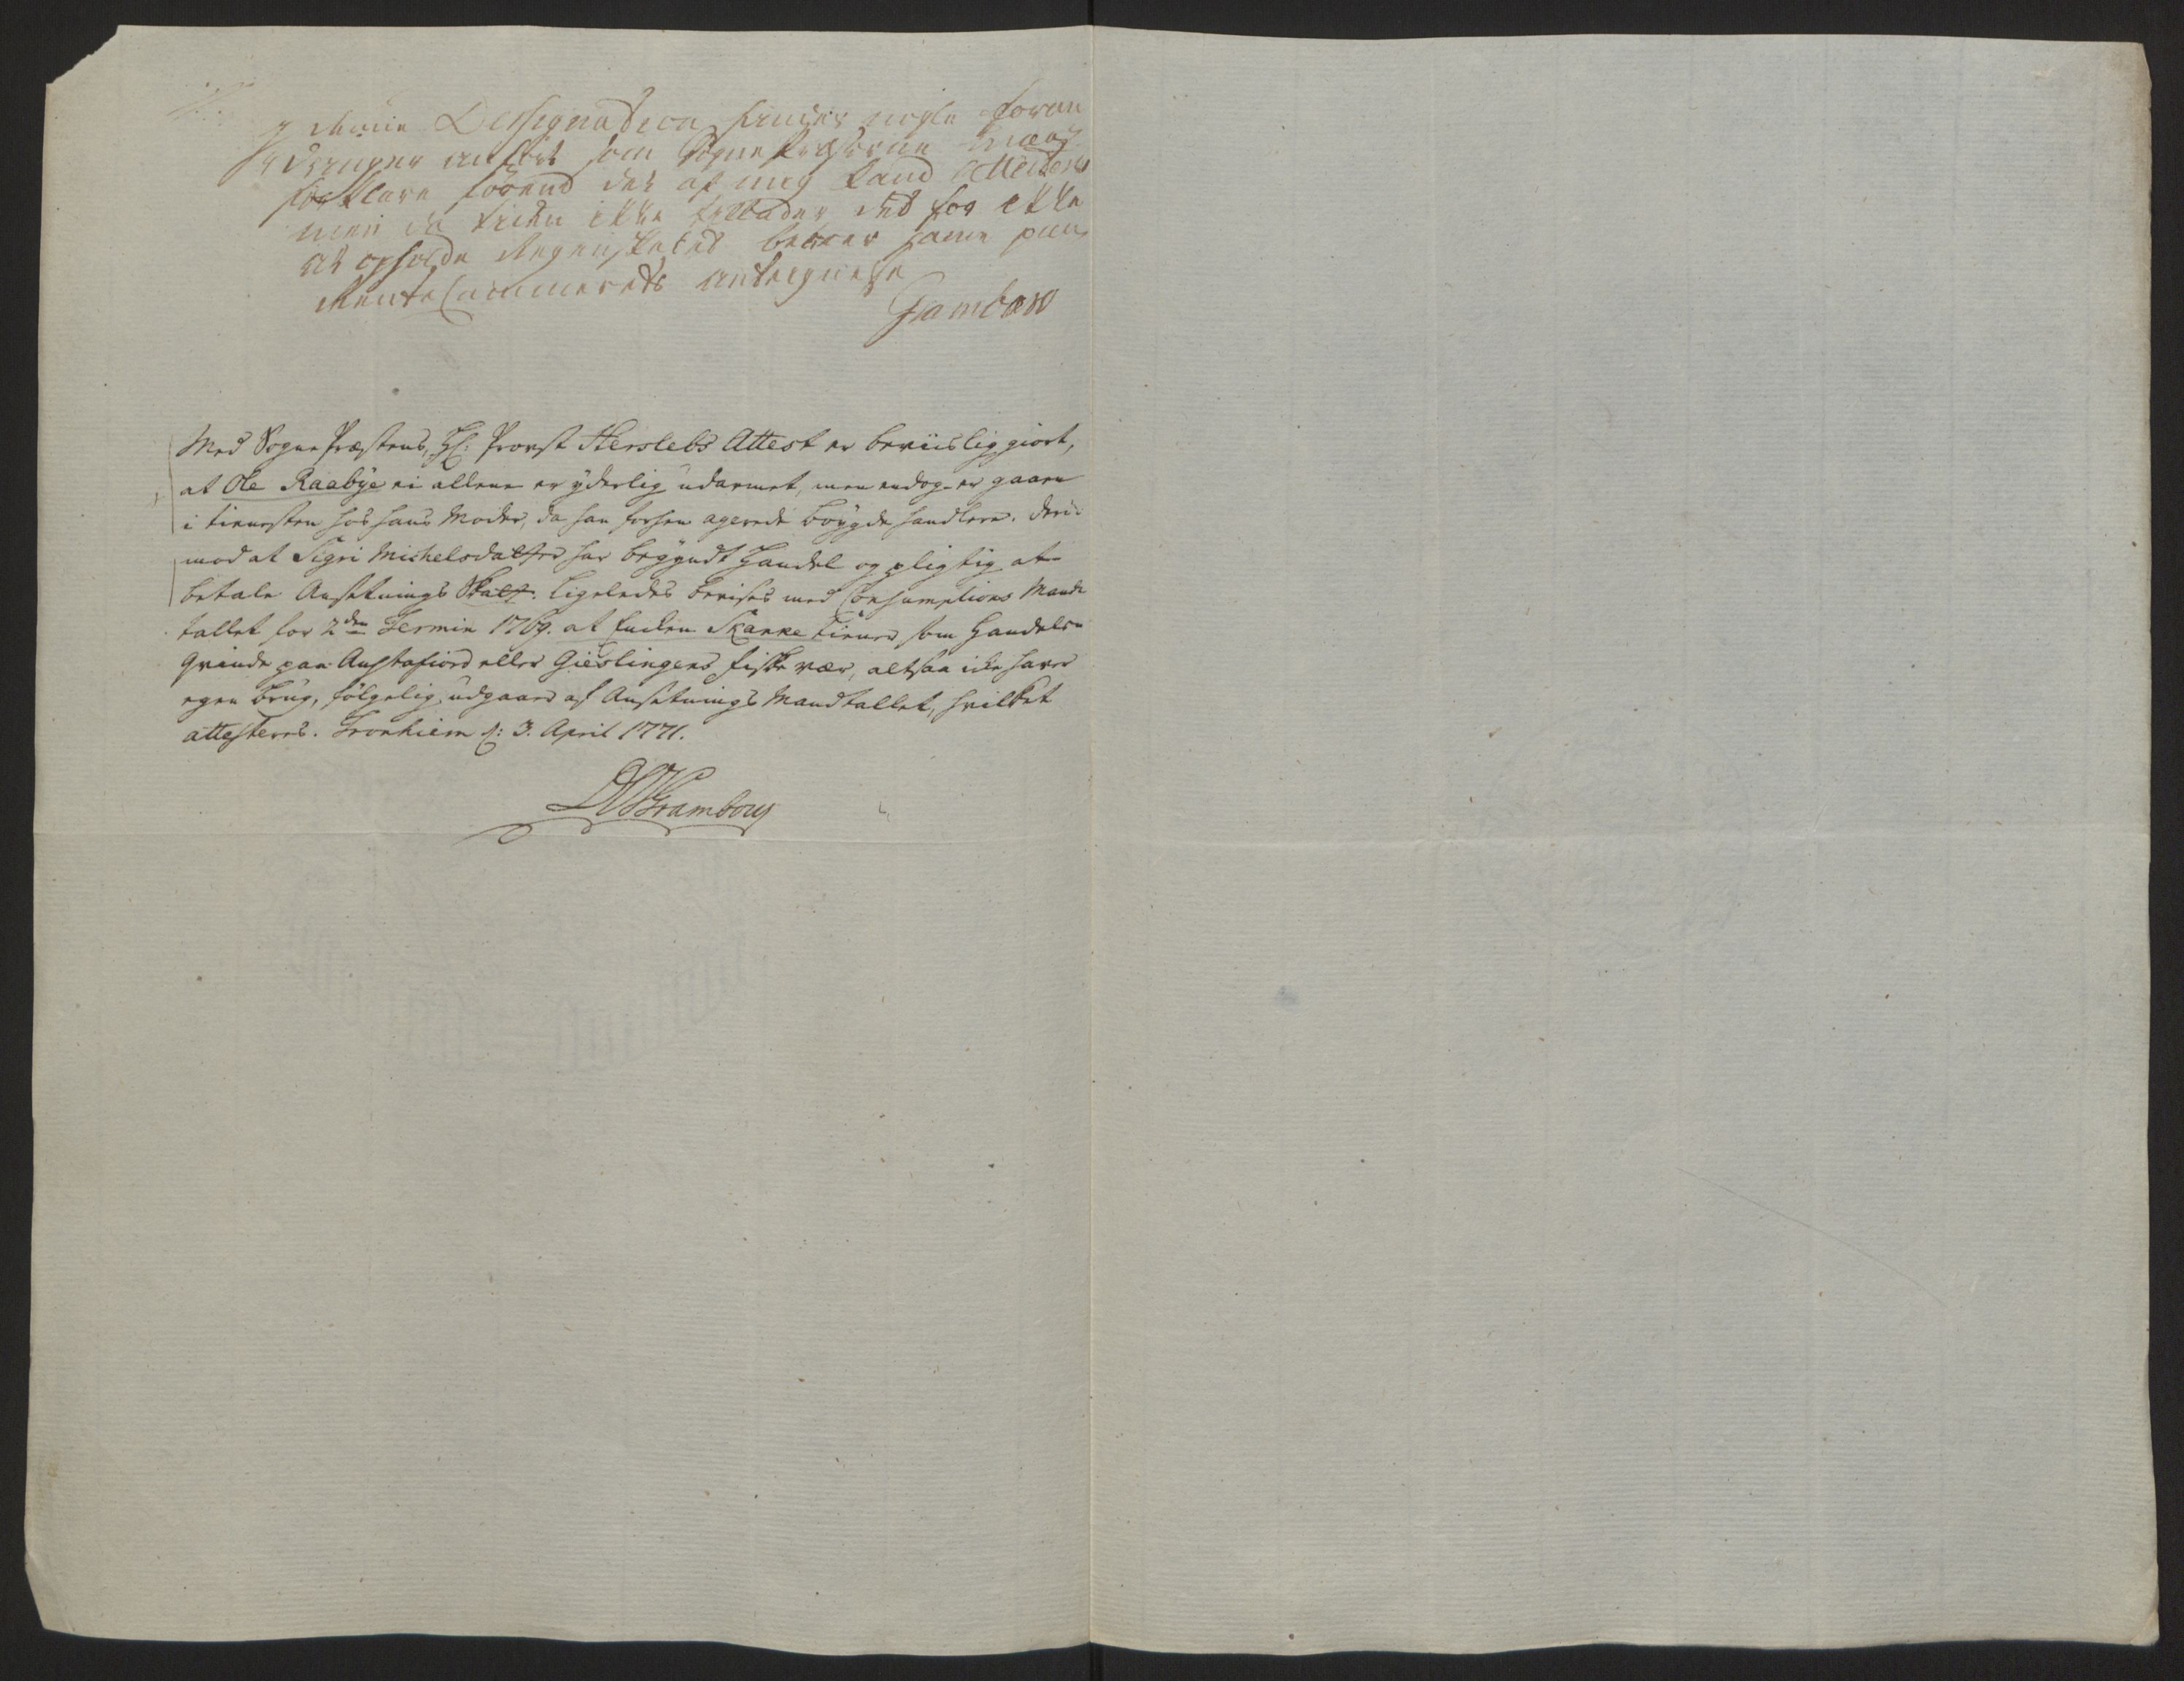 I denne Dessignation findes nogle foran
dringer anført som Sognepræsterne maae
forklare førend det af mig kand Attesteres
men da tiden ikke tillader det for ikke
at opholde Regenskabet beroer samme paa
RenteCammerets antegnelse
Hamboe
Med SognePræstens, Hr: Provst Herslebs Attest er beviislig giort,
at Ole Raabÿe ei allene er ÿderlig udarmet, men endog er gaaen
i tienesten hos hans Moder, da han forhen agerede Bøygde handlere. deri-
mod at Sigri Michelsdatter har begÿndt Handel og pligtig at
betale Ansætnings Skatt. Ligeledes bevises med Consumptions Mand-
tallet for 2den Termin 1769. at Skanke tiener som Handels-
qvinde paa Austafiord eller Gieslingens fiskevær, altsaa icke haver
egen Brug, følgelig udgaaer af Ansætnings Mandtallet, hvilket
attesteres. Tronhiem d: 3. April 1771.
Kramboug